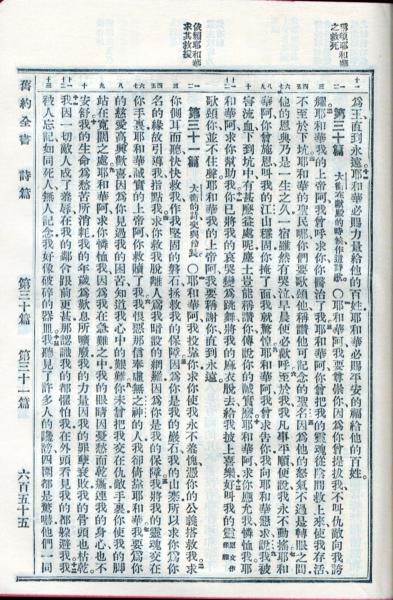 當頌耶和華
之救死
依賴耶和華
求其救援
爲王直到永遠耶和華必賜力量給他的百姓耶和華必賜平安的福給他的百姓。
第三十篇 大衛在獻殿的時候作這詩歌 ○耶和華阿我要尊崇你因爲你曾提拔我不叫仇敵向我誇
耀耶和華我的上帝阿我曾呼求你你醫治了我耶和華阿你曾把我的靈魂從陰間救上來使我存活
不至於下坑耶和華的聖民哪你們要歌頌他稱讚他可記念的聖名因爲他的怒氣不過是轉眼之間
他的恩典乃是一生之久一宿雖然有哭泣早晨便必歡呼至於我我凡事平順便說我永不動搖耶和
華阿你曾施恩叫我的江山穩固你掩了面我就驚惶耶和華阿我曾求告你我向耶和華懇求說我被
害流血下到坑中有甚麼益處呢塵土豈能稱讚你傳說你的誠實麼耶和華阿求你應允我憐恤我耶
和華阿求你幫助我你已將我的哀哭變爲跳舞將我的麻衣脫去給我披上喜樂好叫我的靈原文作榮耀
歌頌你並不住聲耶和華我的上帝阿我要稱謝你直到永遠。
第三十一篇 大衛的詩交與伶長 ○耶和華阿我投靠你求你使我永不羞愧憑你的公義搭救我求
你側耳而聽快快救我作我堅固的磐石拯救我的保障因爲你是我的巖石我的山寨所以求你爲你
名的緣故引導我指點我求你救我脫離人爲我暗設的網羅因爲你是我的保障我將我的靈魂交在
你手裏耶和華誠實的上帝阿你救贖了我我恨惡那信奉虛無之神的人我卻倚靠耶和華我要爲你
的慈愛高興歡喜因爲你見過我的困苦知道我心中的艱難你未曾把我交在仇敵手裏你使我的腳
站在寬闊之處耶和華阿求你憐恤我因爲我在急難之中我的眼睛因憂愁而乾癟連我的身心也不
安舒我的生命爲愁苦所消耗我的年歲爲歎息所曠廢我的力量因我的罪孽衰敗我的骨頭也枯乾
我因一切敵人成了羞辱在我的鄰舍跟前更甚那認識我的都懼怕我在外頭看見我的都躲避我我
被人忘記如同死人無人記念我好像破碎的器皿我聽見了許多人的讒謗四圍都是驚嚇他們一同
舊約全書 詩篇 第三十篇 第三十一篇 六百五十五